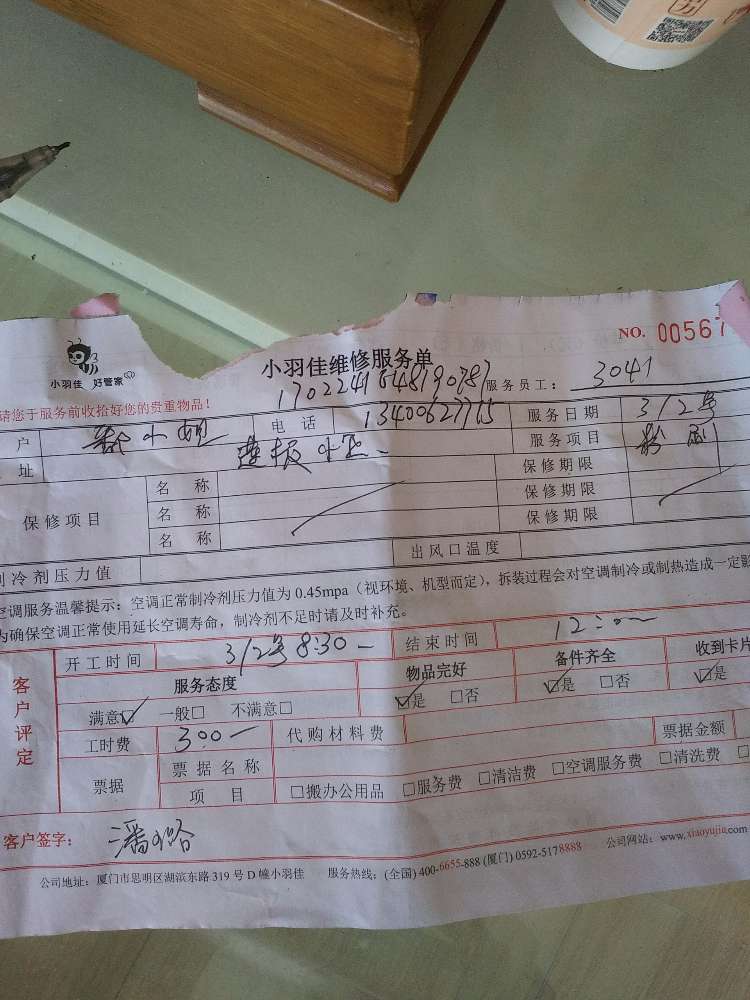 NO. 00567
小羽佳维修服务单
小羽佳 好管家
170224164819078 服务员工： 3041
请您于服务前收拾好您的贵重物品！
户 小姐 电 话 服务日期 3/2号
址 服务项目
保修期限
保修项目 名 称 保修期限
名 称 保修期限
名 称
制冷剂压力值 出风口温度
空调服务温馨提示：空调正常制冷剂压力值为 0.45mpa（视环境、机型而定），拆装过程会对空调制冷或制热造成一定影
为确保空调正常使用延长空调寿命，制冷剂不足时请及时补充。
客户评定 开工时间 3/2号 8:30 结束时间 12:00
服务态度 物品完好 备件齐全 收到卡片
满意☑ 一般□ 不满意□ ☑是 □否 ☑是 □否 ☑是
工时费 300 代购材料费 票据金额
票据 票据名称
项 目 □搬办公用品 □服务费 □清洁费 □空调服务费 □清洗费
客户签字： 潘
公司地址：厦门市思明区湖滨东路 319 号 D 幢小羽佳 服务热线：(全国) 400-6655-888 (厦门) 0592-5178888 公司网站：www.xiaoyujia.com